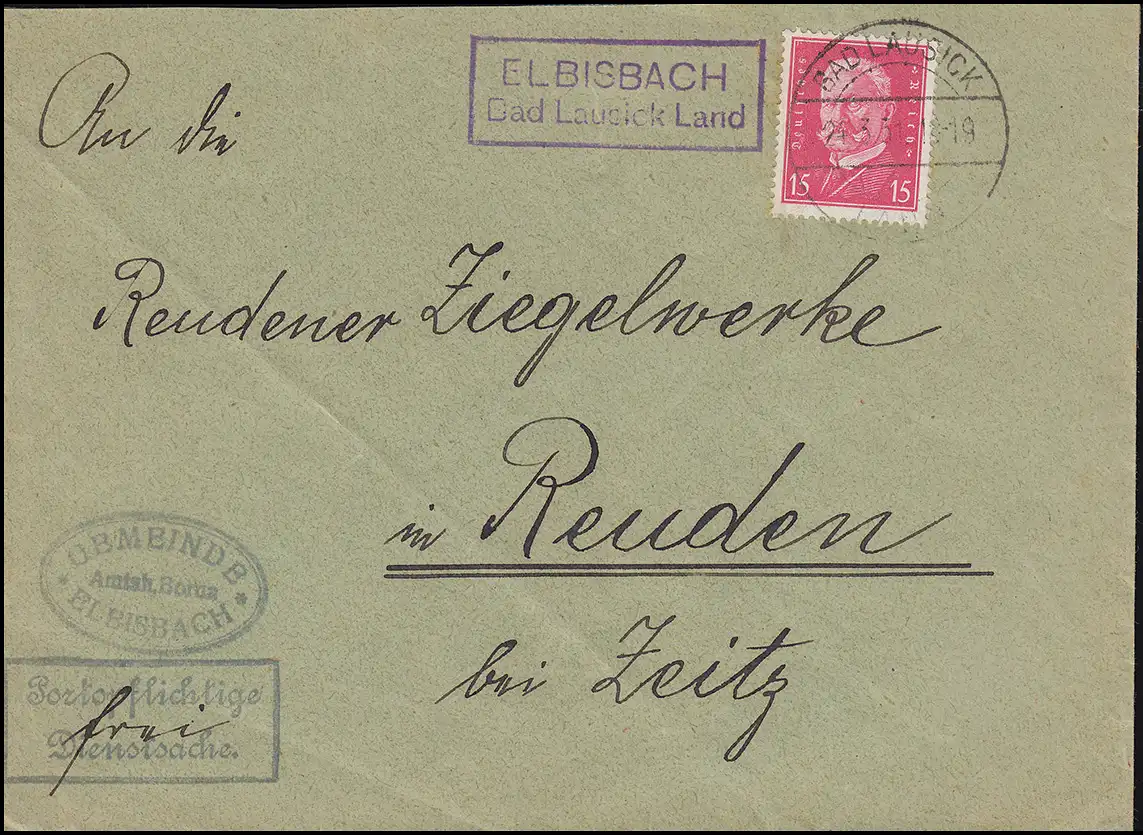 ELBISBACH
Bad Lausick Land
Deutsches Reich
15 15
BAD LAUSICK
An die
Reudener Ziegelwerke
in Reuden
bei Zeitz
GEMEINDE
Amtsh. Borna
* ELBISBACH *
Portopflichtige
frei
Dienstsache.